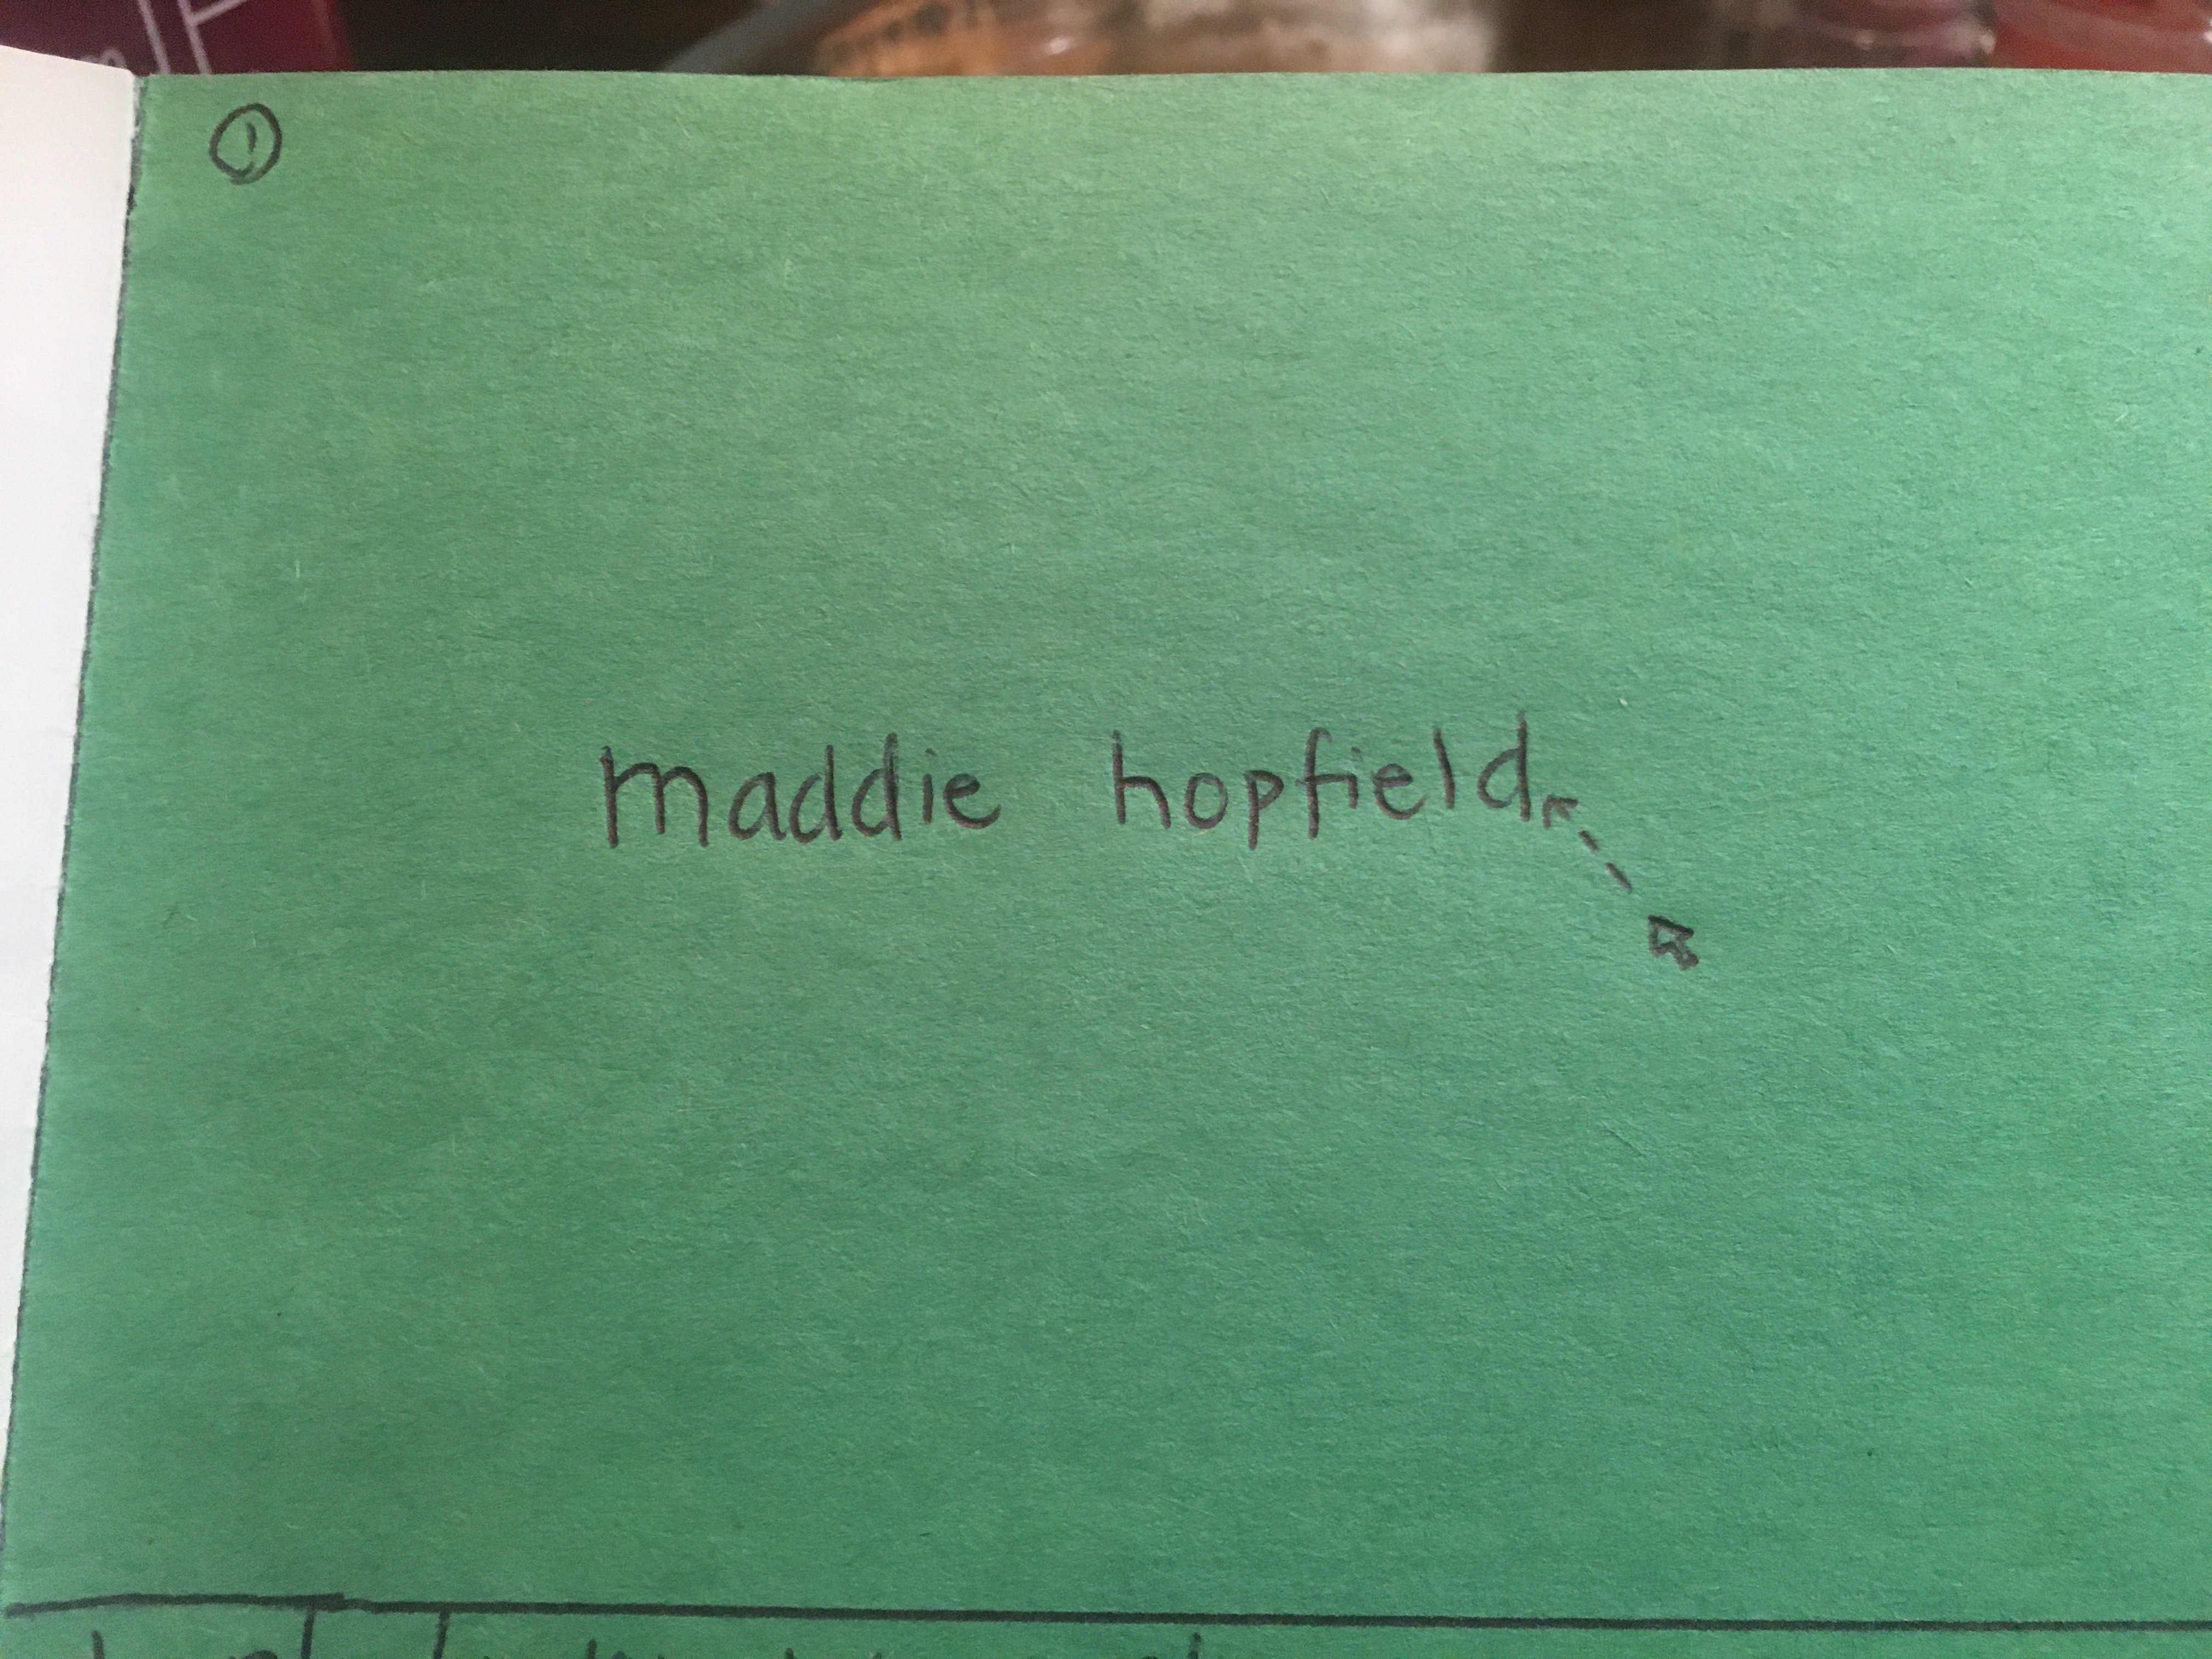 ①
maddie hopfield